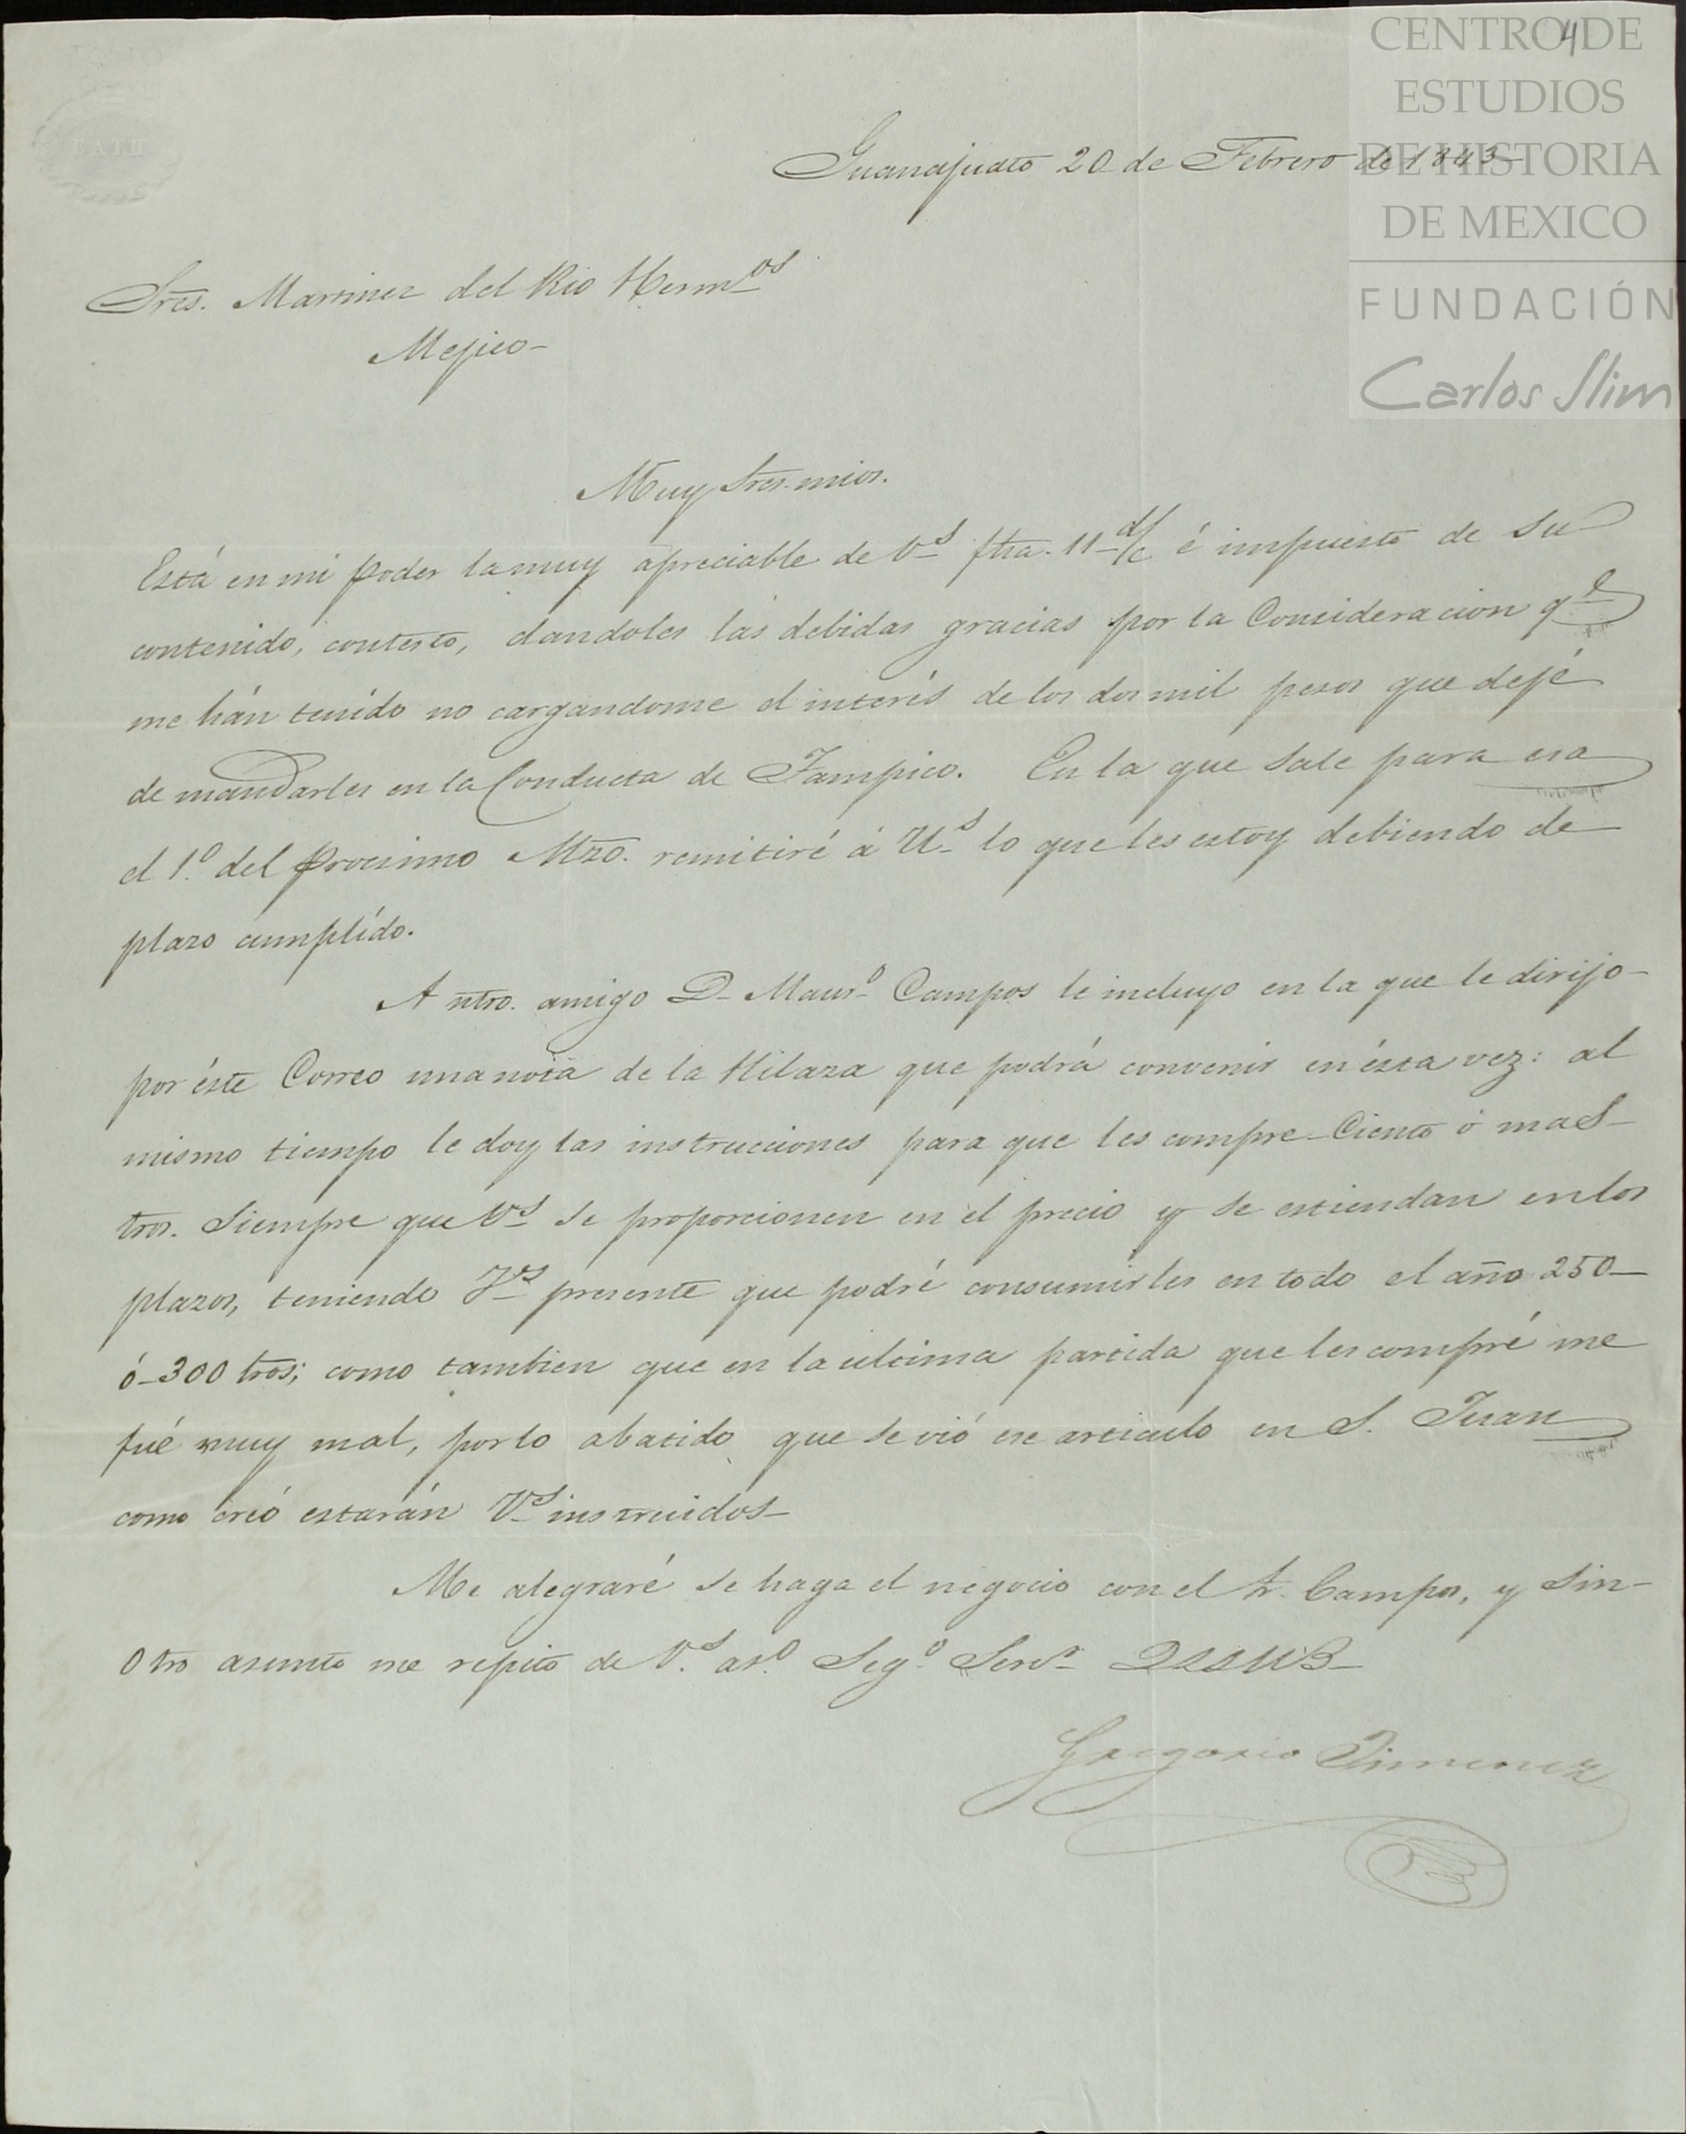 CENTRO DE
ESTUDIOS
DE HISTORIA
DE MEXICO
FUNDACIÓN
Carlos Slim
4
BATH
Guanajuato 20 de Febrero de 1843-
Sres. Martinez del Rio Hermos
Mejico-
Muy Sres. mios.
Está en mi poder la muy apreciable de Vs ftra. 11 d/c é impuesto de su
contenido, contesto, dandoles las debidas gracias por la Consideracion qe
me hán tenído no cargandome el interés de los dos mil pesos que dejé
de mandarles en la Conducta de Tampico. En la que sale para esa
el 1º. del procsimo Mzo. remitiré á Us lo que les estoy debiendo de
plazo cumplído.
A ntro. amigo D- Mauro Campos le incluyo en la que le dirijo-
por éste Correo una nota de la Hilaza que podrá convenir en ésta vez: al
mismo tiempo le doy las instrucciones para que les compre-Ciento ó mas-
tros. Siempre que Vs se proporcionen en el precio y se estiendan en los
plazos, teniendo Vs presente que podré consumirles en todo el año 250-
ó-300 tros; como tambien que en la ultima partida que les compré me
fué muy mal, por lo abatido que se vió ese articulo en S. Juan
como creó estarán Vs instruidos-
Me alegraré se haga el negocio con el Sr. Campos, y sin-
Otro asunto me repito de Vs. aso. Sego. Servr QSSMB-
Gregorio Jimenez